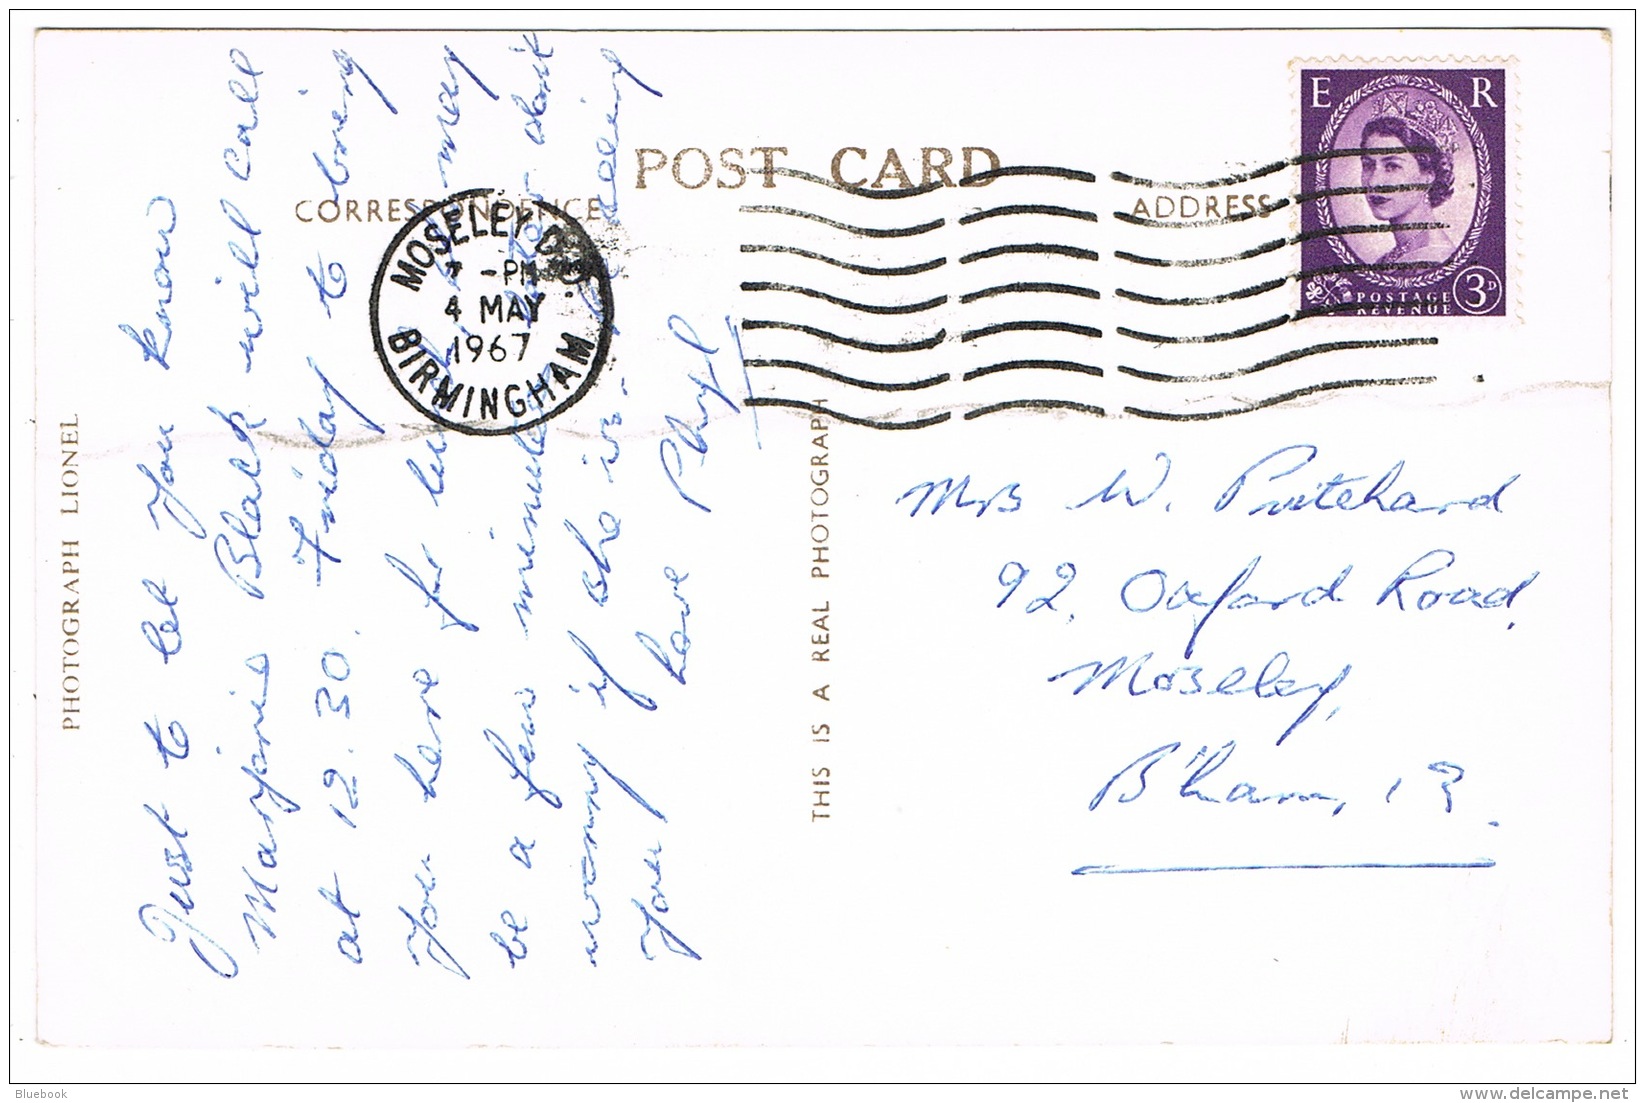 POST CARD
CORRESPONDENCE
ADDRESS
E R
POSTAGE
REVENUE
3D
MOSELEY
7 -PM
4 MAY
1967
BIRMINGHAM
PHOTOGRAPH LIONEL
THIS IS A REAL PHOTOGRAPH
Just to let you know
Marjorie Black will call
at 12.30. Friday to bring
you here for may
be a few minutes later don't
worry if she is.
you
love Phyl
Mrs W. Pritchard
92. Oxford Road,
Moseley,
B'ham, 13.
Bluebook
delcampe.net